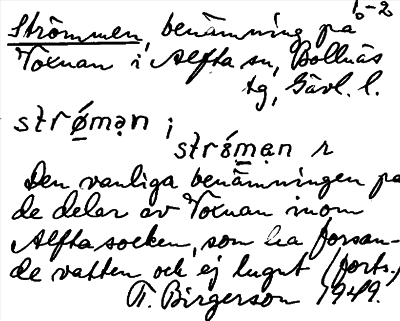 b-2
Strömmen, benämning på
Voxnan i Alfta sn, Bollnäs
tg, Gävl. l.
strǿmạn ;
strǿmạn r
Den vanliga benämningen på
de delar av Voxnan inom
Alfta socken, som ha forsan-
de vatten och ej lugnt (forts.)
T. Birgerson 1949.